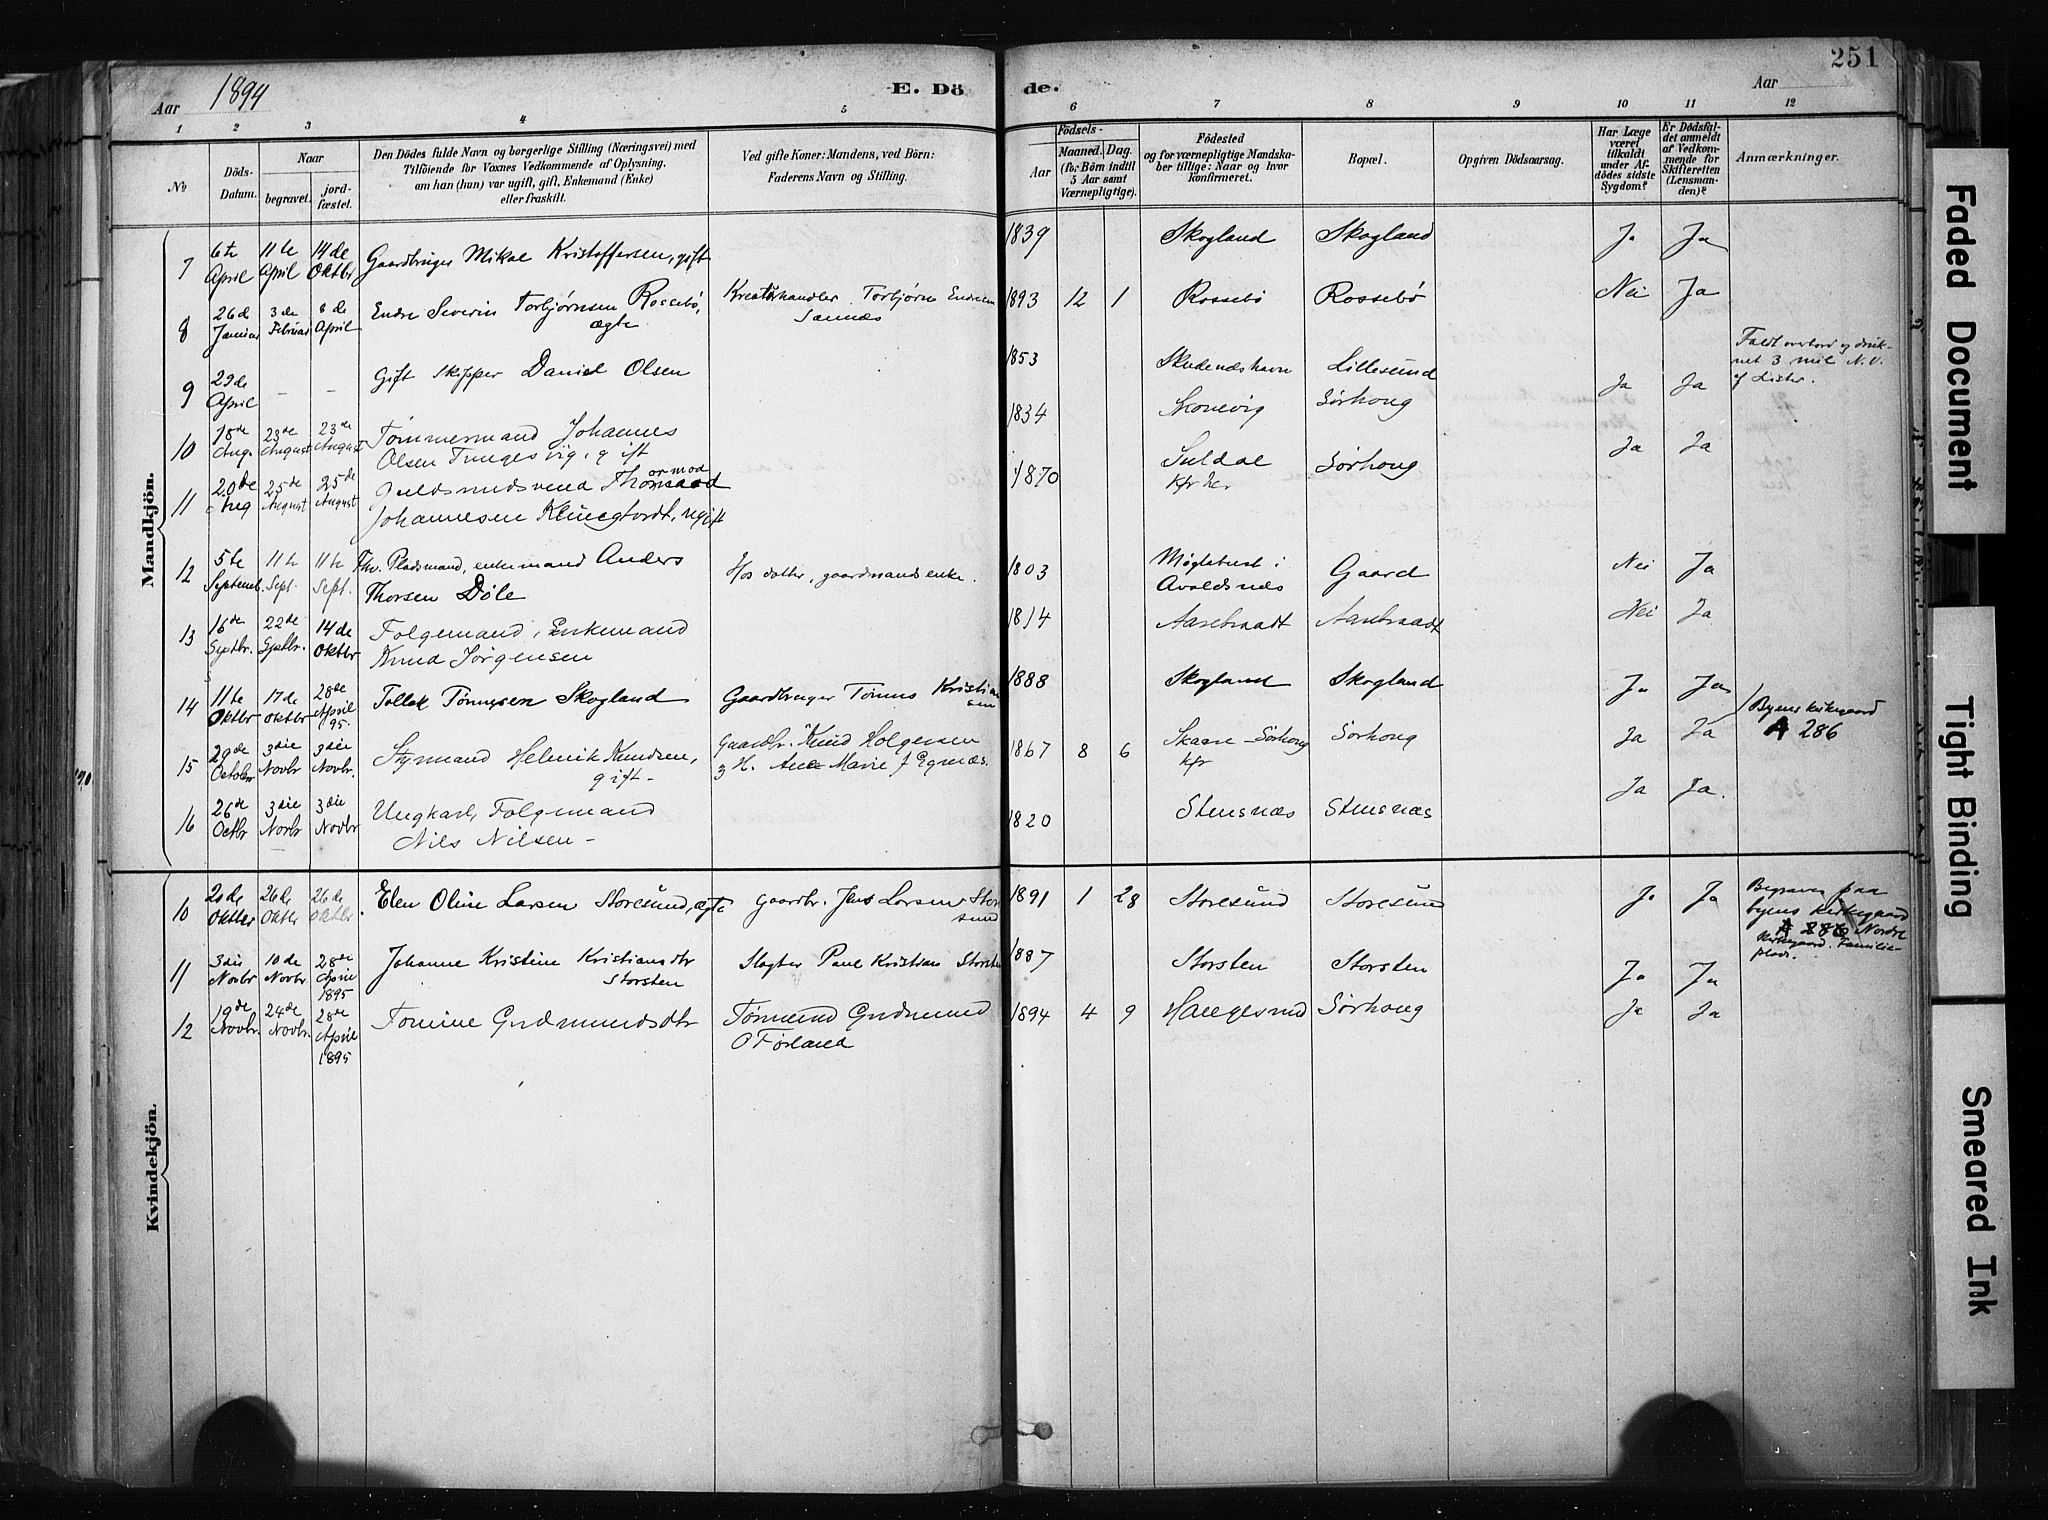 251
Aar 1894
E. Döde.
Aar
1 2 3 4 5 6 7 8 9 10 11 12
No
Döds-Datum.
Naar
begravet.
jord-fæstet.
Den Dödes fulde Navn og borgerlige Stilling (Næringsvei) med
Tilföiende for Voxnes Vedkommende af Oplysning,
om han (hun) var ugift, gift, Enkemand (Enke)
eller fraskilt.
Ved gifte Koner: Mandens, ved Börn:
Faderens Navn og Stilling.
Födsels-
Aar
Maaned. Dag.
(for Börn indtil
5 Aar samt
Værnepligtige).
Födested
og for værnepligtige Mandska-
ber tillige: Naar og hvor
konfirmeret.
Bopæl.
Opgiven Dödsaarsag.
Har Læge
været
tilkaldt
under Af-
dödes sidste
Sygdom?
Er Dödsfal-
det anmeldt
af Vedkom-
mende for
Skifteretten
(Lensman-
den)?
Anmærkninger.
Mandkjön.
7 6te April 11te April 14de Oktbr Gaardbruger Mikal Kristoffersen, gift 1839 Skogland Skogland Ja Ja
8 26de Januar 3de Februar 8de April Endre Severin Torbjørnsen Rossebø, ægte Kreaturhandler Torbjørn Endresen Sannes 1893 12 1 Rossebö Rossebø Nei Ja
9 29de April - - Gift Skipper Daniel Olsen 1853 Skudenæshavn Lillesund Ja Ja Faldt overbord og druk-
net 3 mil N.V.
af Lister.
10 18de Aug. 23de August 23de August Tømmermand Johannes
Olsen Tungesvig, gift 1834 Skonevig Sørhoug Ja Ja
11 20de Aug 25de August 25de August Guldsmedsvend
Johannesen ugift 1870 Suldal
Kfr her Sørhoug
12 5te Septemb. 11te Sept. 11te Sept. Fhv. Pladsmand, enkemand Anders
Thorsen Døle Hos datter, gaardmandsenke. 1803 i
Avaldsnes Gaard Nei Ja
13 16de Septbr. 22de Septbr. 14de Oktbr Folgemand, Enkemand
Knud Jørgensen 1814 Aarebraadt Aarebraadt Nei Ja
14 11te Oktbr 17de Oktbr 28de April 95. Tollak Tönnesen Skogland Gaardbruger Tönnes Kristian
sen 1888 Skogland Skogland Ja Ja Byens kirkegaard
A 286
15 29de October 3die Novbr 3die Novbr. Styrmand Helmik Knudsen,
gift - Gaardbr. Knud Holgersen
3 H. Ane Marie J Egenæs. 1867 8 6 Skaare - Sørhoug
Kfr Sørhoug Ja Ja
16 26de Octbr 3die Novbr 3die Novbr Ungkarl, Folgemand
Nils Nilsen - 1820 Stensnæs Stensnæs Ja Ja.
Kvindekjön.
10 20de Oktbr 26de Oktbr 26de Oktbr. Elen Oline Larsen Storesund, ægte Gaardbr. Jens Larsen Store
sund 1891 1 28 Storesund Storesund Ja Ja Begraven paa
byens kirkegaard
A 286 Nordre
Kirkegaard. Familie-
plads.
11 3die Novbr 10de Novbr 28de April 1895 Johanne Kristine Kristiansdtr
Storsten Slagter Paul Kristian Storsten 1887 Storsten Storsten Ja Ja
12 19de Novbr. 24de Novbr. 28de April 1895 Tomine Gudmundsdtr Tønnund Gudmund
O Førland 1894 4 9 Haugesund Sørhoug Ja Ja
Faded Document
Tight Binding
Smeared Ink